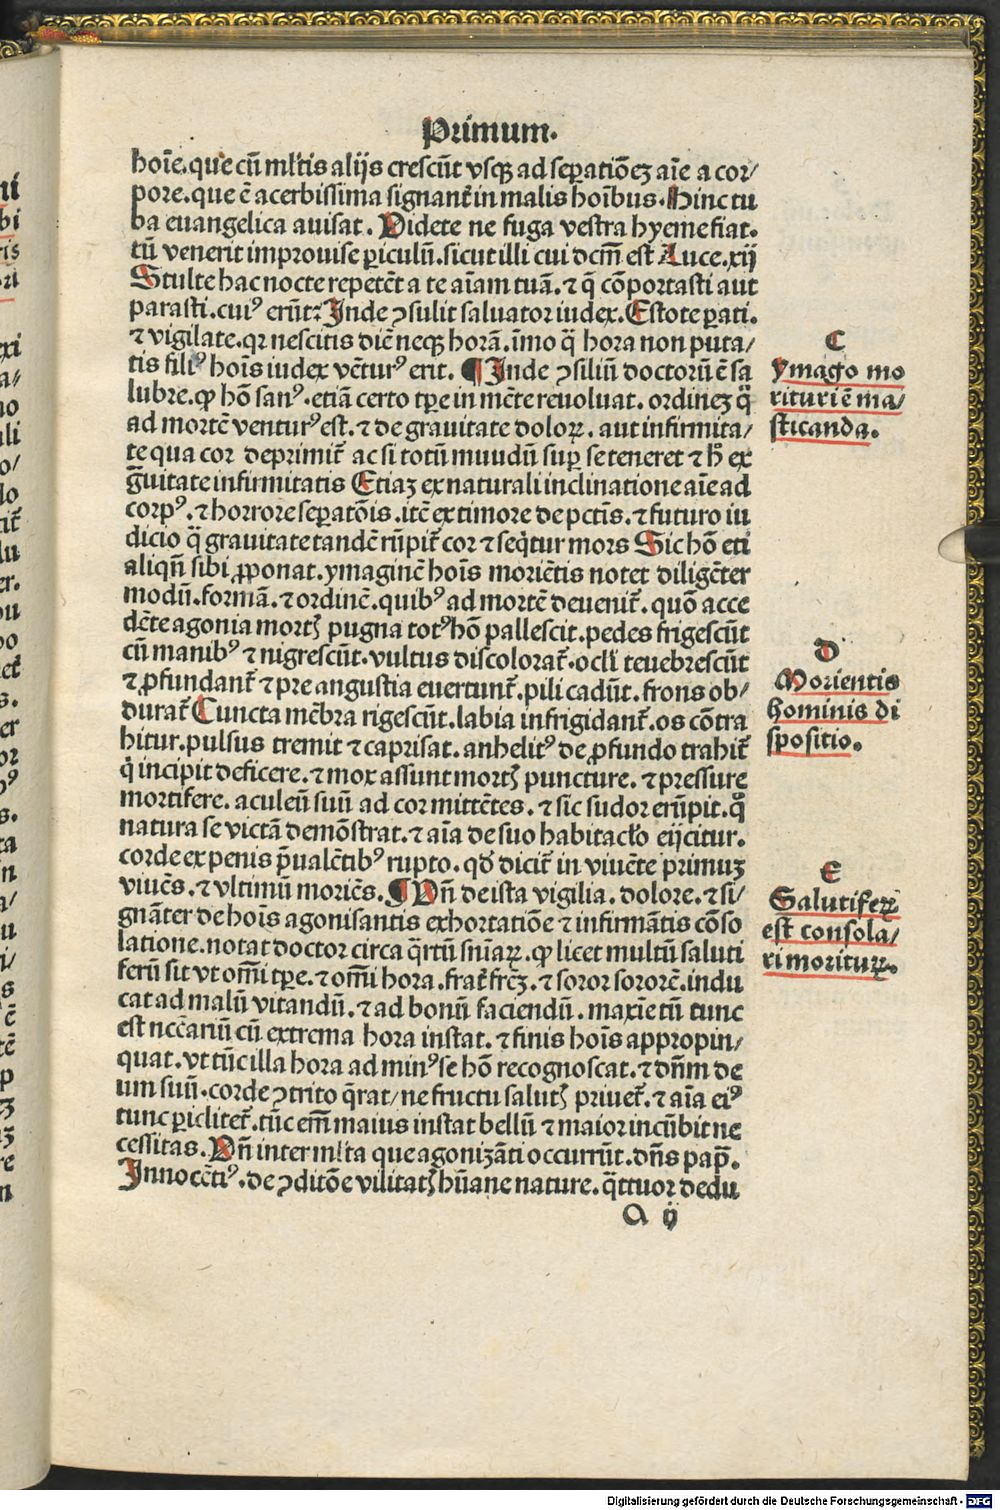 Primum.
hoīe. que cū ml̄tis alijs crescūt vsq̄ ad sepatiōeʒ aīe a cor/
pore. que ē acerbissima signant̄ in malis hoībus. Hinc tu
ba euangelica auisat. Videte ne fuga vestra hyeme fiat.
tū venerit improuise piculū. sicut illi cui dcm̄ est Luce. xij
Stulte hac nocte repetēt a te aīam tuā. ⁊ q̄ cōportasti aut
parasti. cuiꝰ erūt? Inde ꝯsulit saluator iudex. Estote pati.
⁊ vigilate. qꝛ nescitis diē neqꝫ horā. īmo q̄ hora non puta/
tis filiꝰ hoīs iudex vēturꝰ erit. ¶ Inde ꝯsiliū doctorū ē sa
lubre. ꝙ hō sanꝰ. etiā certo tp̄e in mēte reuoluat. ordineʒ q̄
ad mortē venturꝰ est. ⁊ de grauitate doloꝝ. aut infirmita/
te qua cor deprimit̄ ac si totū muudū suꝑ se teneret ⁊ h̄ ex
g̈uitate infirmitatis Etiaʒ ex naturali inclinatione aīe ad
corpꝰ. ⁊ horrore sepatōis. itē ex timore de pctīs. ⁊ futuro iu
dicio q̄ grauitate tandē rūpit̄ cor ⁊ seq̄tur mors Sic hō eti
aliqn̄ sibi ꝓponat. ymaginē hoīs moriētis notet diligēter
modū. formā. ⁊ ordinē. quibꝰ ad mortē deuenit̄. quō acce
dēte agonia mortꝭ pugna totꝰ hō pallescit. pedes frigescūt
cū manibꝰ ⁊ nigrescūt. vultus discolorat̄. ocl̄i teuebrescūt
⁊ ꝓfundant̄ ⁊ pre angustia euertunt̄. pili cadūt. frons ob/
durat̄ Cuncta mēbra rigescūt. labia infrigidant̄. os cōtra
hitur. pulsus tremit ⁊ caprisat. anhelitꝰ de ꝓfundo trahit̄
q̄ incipit deficere. ⁊ mox assunt mortꝭ puncture. ⁊ pressure
mortifere. aculeū suū ad cor mittētes. ⁊ sic sudor erūpit. q̄
natura se victā demōstrat. ⁊ aīa de suo habitacl̄o eijcitur.
corde ex penis p̄ualētibꝰ rupto. qď dicit̄ in viuēte primuʒ
viuēs. ⁊ vltimū moriēs. ¶ Vn̄ de ista vigilia. dolore. ⁊ si/
gnāter de hoīs agonisantis exhortatiōe ⁊ infirmātis cōso
latione. notat doctor circa q̄rtū sniaꝝ. ꝙ licet multū saluti
ferū sit vt om̄i tp̄e. ⁊ om̄i hora. frat̄ frēʒ. ⁊ soror sororē. indu
cat ad malū vitandū. ⁊ ad bonū faciendū. maxīe tū tunc
est nccēariū cū extrema hora instat. ⁊ finis hoīs appropin/
quat. vt tūc illa hora ad minꝰ se hō recognoscat. ⁊ dn̄m de
um suū. corde ꝯtrito q̄rat / ne fructu salutꝭ priuet̄. ⁊ aīa eiꝰ
tunc piclitet̄. tūc em̄ maius instat bellū ⁊ maior incūbit ne
cessitas. Vn̄ inter ml̄ta que agonizāti occurrūt. dn̄s pap̄.
Innocētiꝰ. de ꝯditōe vilitatꝭ hūane nature. q̄ttuor dedu
a ij
C
Ymago mo
rituri ē ma/
sticanda.
D
Morientis
hominis di
spositio.
E
Salutifeꝝ
est consola/
ri morituꝝ.
Digitalisierung gefördert durch die Deutsche Forschungsgemeinschaft - DFG